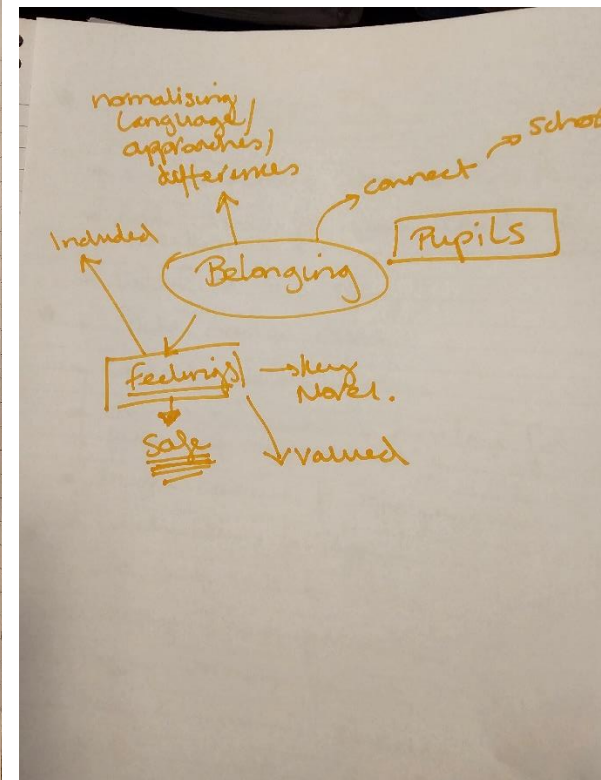 normalising
language/
approaches/
differences
connect
Included
Belonging
Pupils
Feelings
safe
valued